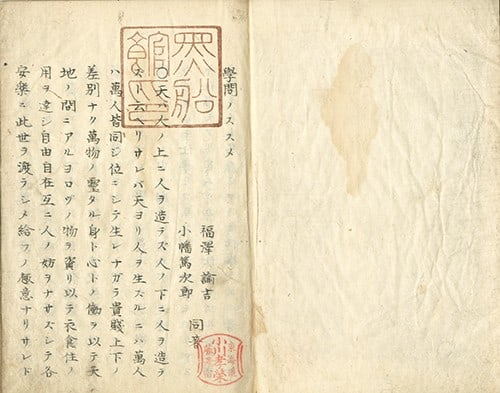 黑船
館印
學問ノススメ
福澤諭吉
小幡篤次郎 同著
○天ハ人ノ上ニ人ヲ造ラズ人ノ下ニ人ヲ造ラ
ズト云ヘリサレバ天ヨリ人ヲ生ズルニハ萬人
ハ萬人皆同ジ位ニシテ生レナガラ貴賤上下ノ
差別ナク萬物ノ靈タル身ト心トノ働ヲ以テ天
地ノ間ニアルヨロヅノ物ヲ資リ以テ衣食住ノ
用ヲ達シ自由自在互ニ人ノ妨ヲナサズシテ各
安樂ニ此世ヲ渡ラシメ給フノ趣意ナリサレド